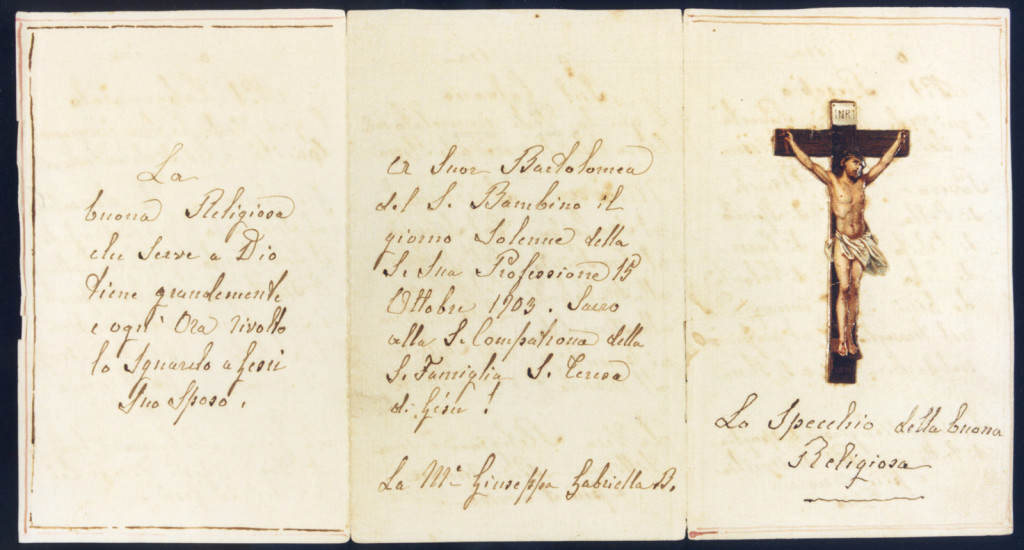 La
buona Religiosa
che serve a Dio
tiene grandemente
e ogn' Ora rivolto
lo Sguardo a Gesù
Suo Sposo.
A Suor Bartolomea
del S. Bambino il
giorno Solenne della
S. Sua Professione 15
Ottobre 1903. Sacro
alla S. Compatrona della
S. Famiglia S. Teresa
di Gesù!
La Mª Giuseppa Gabriella B.
INRI
Lo Specchio della buona
Religiosa